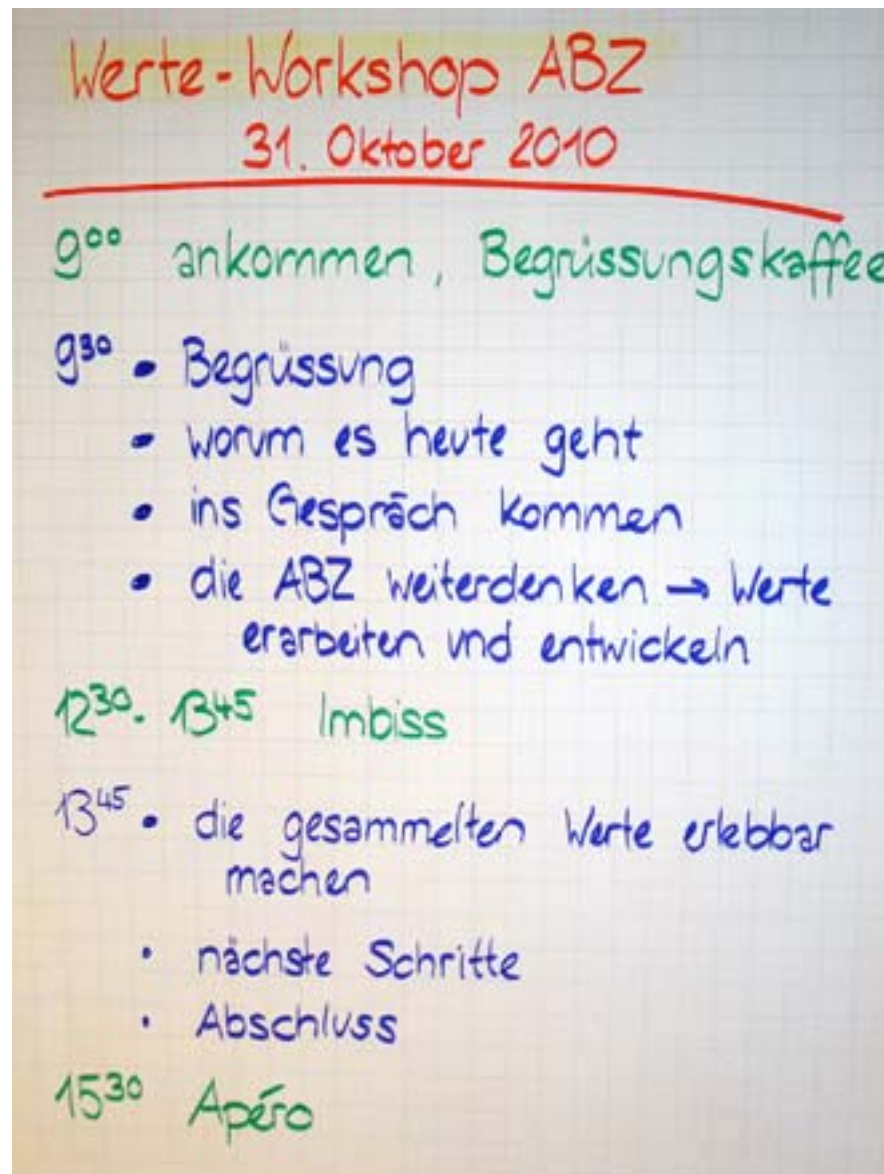 Werte-Workshop ABZ
31. Oktober 2010
9⁰⁰ ankommen, Begrüssungskaffee
9³⁰ • Begrüssung
• worum es heute geht
• ins Gespräch kommen
• die ABZ weiterdenken → Werte
erarbeiten und entwickeln
12³⁰- 13⁴⁵ Imbiss
13⁴⁵ • die gesammelten Werte erlebbar
machen
• nächste Schritte
• Abschluss
15³⁰ Apéro